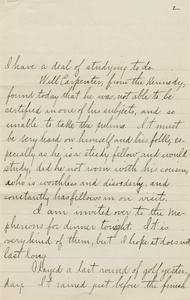 2
I have a deal of studying to do.
Will Carpenter, from the Kennedy,
found today that he was not able to be
certified in one of his subjects, and so
unable to take the prelims. It must
be very hard on himself and his folks, es-
pecially as he is a steady fellow and would
study, did he not room with his cousin,
who is worthless and disorderly, and
constantly has fellows in on visits.
I am invited over to the Mc-
phersons for dinner tonight. It is
very kind of them, but I hope it does not
last long.
Played a last round of golf yester-
day. It rained just before the formal